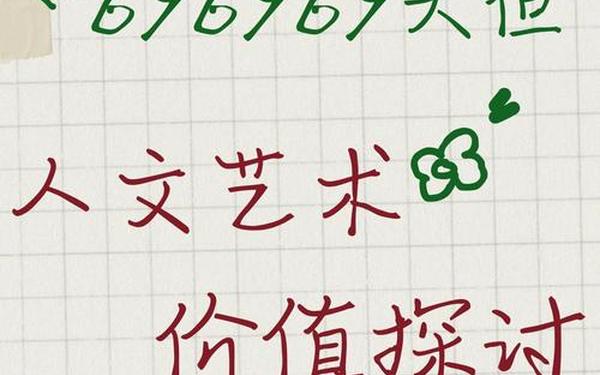 696969大但
人文艺术
价值探讨